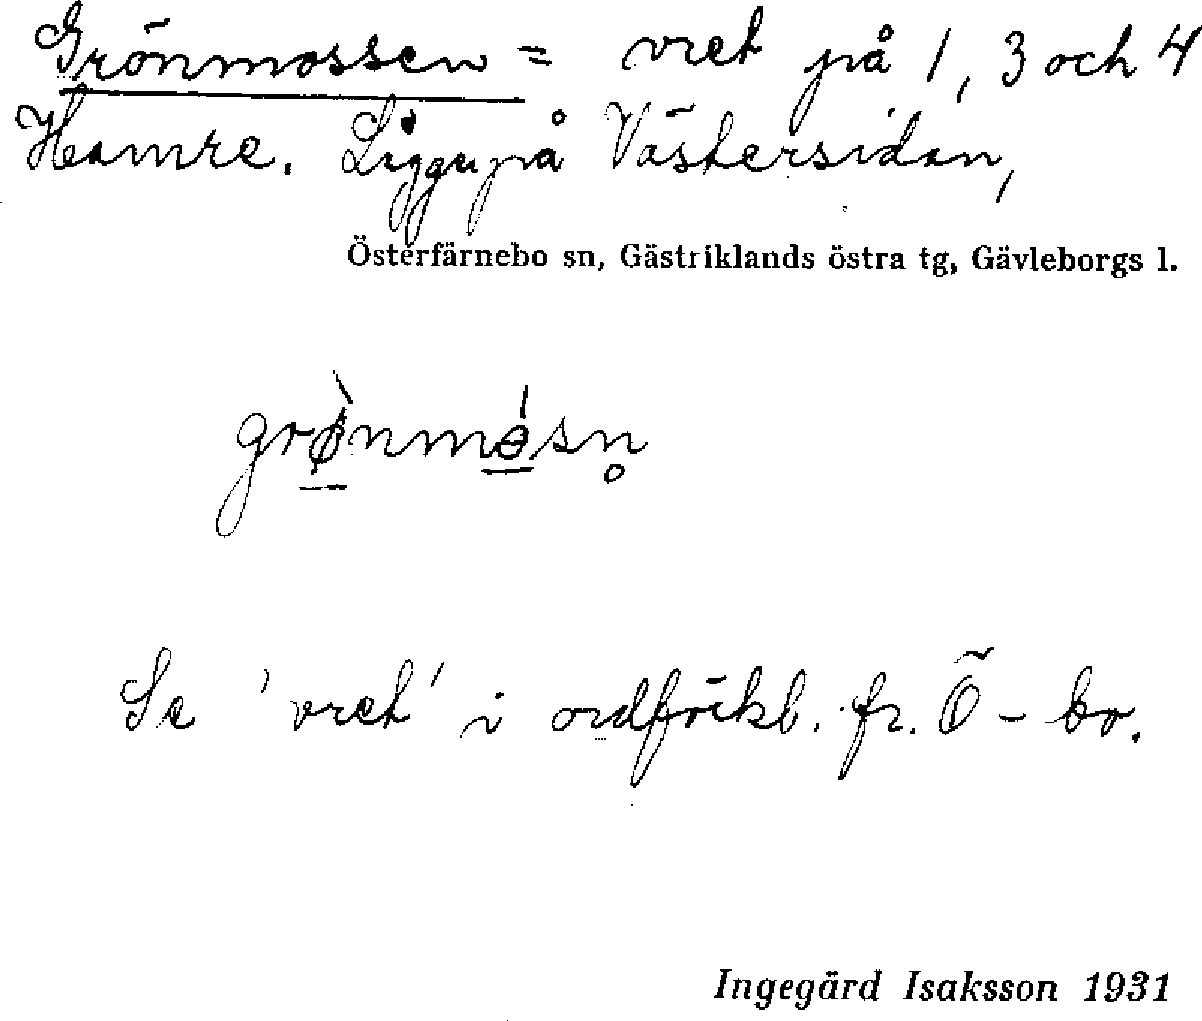 Grönmossen = vret på 1, 3 och 4
Hamre. Ligger på Västersidan,
Österfärnebo sn, Gästriklands östra tg, Gävleborgs l.
grø̀nmósn̥
Se 'vret' i ordförkl. fr. Ö-bo.
Ingegärd Isaksson 1931